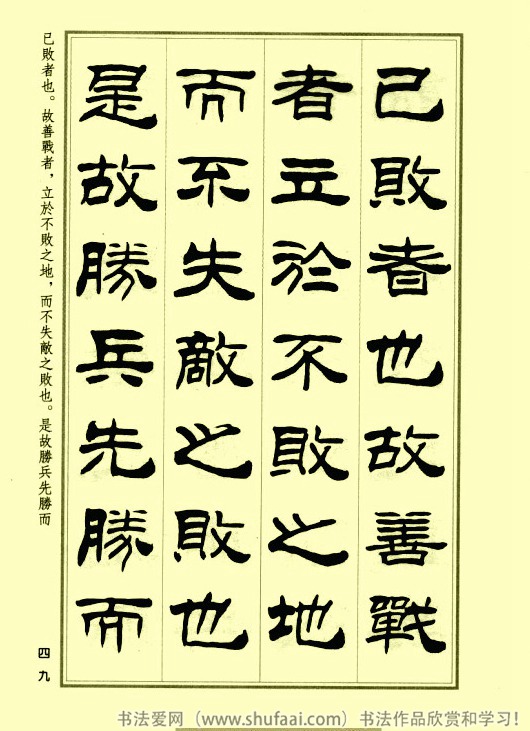 已敗者也故善戰
者立於不敗之地
而不失敵之敗也
是故勝兵先勝而
已敗者也。故善戰者，立於不敗之地，而不失敵之敗也。是故勝兵先勝而
四九
书法爱网（www.shufaai.com）书法作品欣赏和学习！